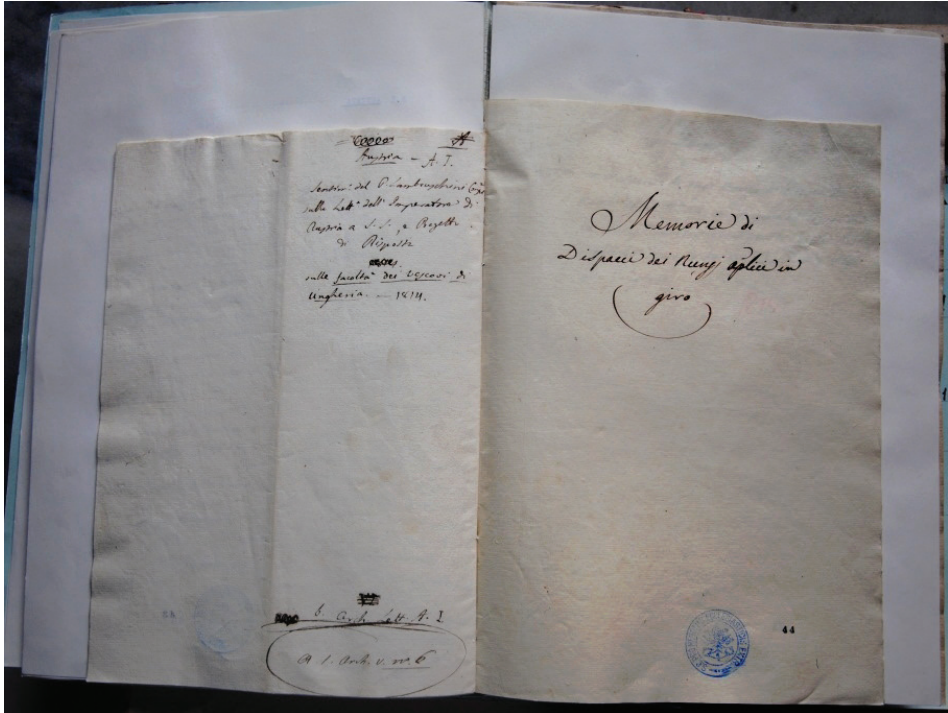 Austria - A. I.
Sentim.º del P. Lambruschini
sulla Lett.ª dell'Imperatore di
Austria a S. S., e Progetto
di Risposta
sulle facoltà dei Vescovi di
Ungheria. - 1814.
6. Arch. Lett. A. I
A. I. Arch. v. nº. 6
Memorie di
Dispacci dei Nunzj aplici in
giro
44